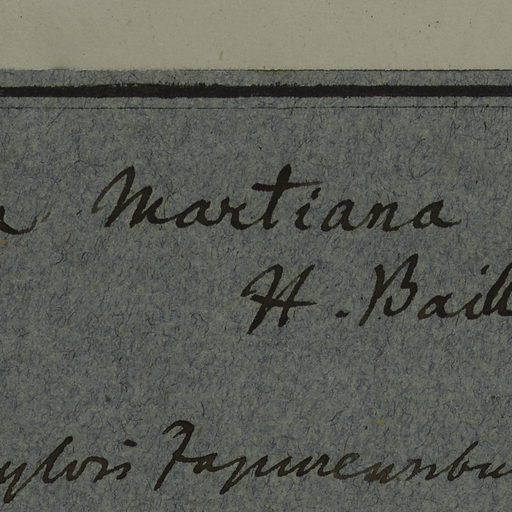 a Martiana
H. Baill
ylvis Japurensibu